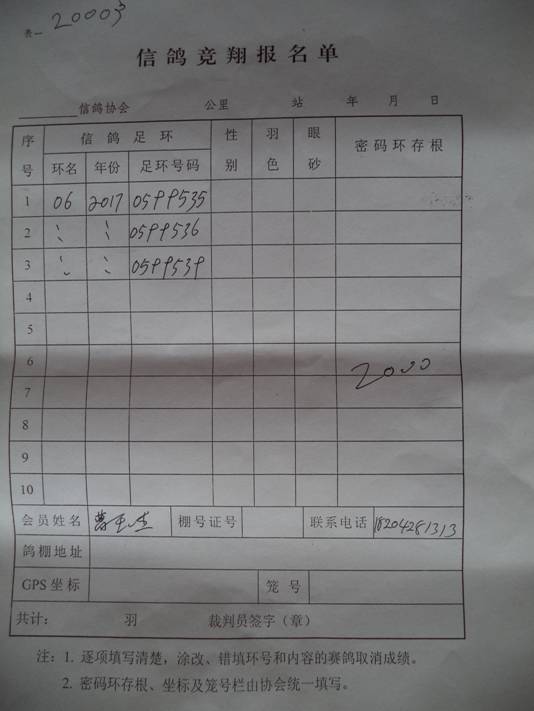 表一 20003
信鸽竞翔报名单
信鸽协会 公里 站 年 月 日
序号 信鸽足环 性别 羽色 眼砂 密码环存根
环名 年份 足环号码
1 06 2017 0599535
2 〃 〃 0599536
3 〃 〃 0599539
4
5
6
2000
7
8
9
10
会员姓名 棚号证号 联系电话 18204281313
鸽棚地址
GPS坐标 笼号
共计： 羽 裁判员签字（章）
注：1. 逐项填写清楚，涂改、错填环号和内容的赛鸽取消成绩。
2. 密码环存根、坐标及笼号栏由协会统一填写。